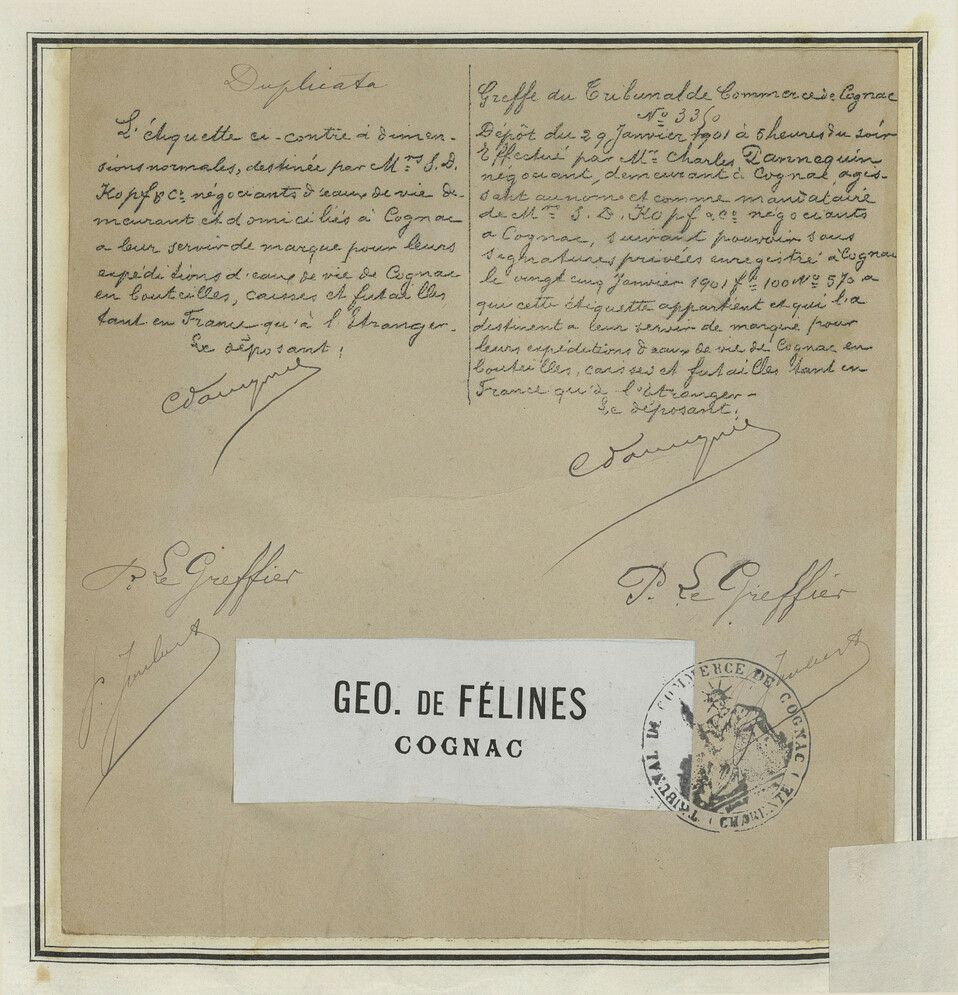 Duplicata
L'étiquette ci-contre à dimen-
sions normales, destinée par Mrs S. D.
Kopf & Cie négociants d'eaux de vie de-
meurant et domiciliés à Cognac
a leur servir de marque pour leurs
expéditions d'eaux de vie de Cognac
en bouteilles, caisses et futailles
tant en France qu'à l'Etranger.
Le déposant,
Greffe du Tribunal de Commerce de Cognac
No 3350
Dépôt du 29 Janvier 1901 à 5 heures du soir
Effectué par Mr Charles Dannequin
négociant, demeurant à Cognac, agis-
sant au nom et comme mandataire
de Mrs S. D. Kopf & Cie négociants
a Cognac, suivant pouvoir sous
signatures privées enregistré à Cognac
le vingt cinq Janvier 1901 fo 100 No 570 a
qui cette étiquette appartient et qui l'a
destinent a leur servir de marque pour
leurs expéditions d'eaux de vie de Cognac en
bouteilles, caisses et futailles tant en
France qu'à l'étranger-
Le déposant,
P. Le Greffier
P. Le Greffier
GEO. DE FÉLINES
COGNAC
TRIBUNAL DE COMMERCE DE COGNAC (CHARENTE)